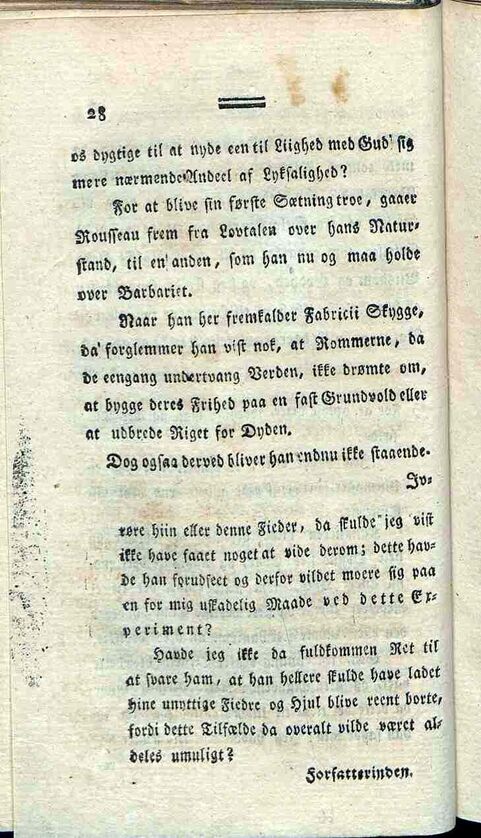 28
os dygtige til at nyde een til Liighed med Gud sig
mere nærmende Andeel af Lyksalighed?
For at blive sin første Sætning troe, gaaer
Rousseau frem fra Lovtalen over hans Natur-
stand, til en anden, som han nu og maa holde
over Barbariet.
Naar han her fremkalder Fabricii Skygge,
da forglemmer han vist nok, at Rommerne, da
de eengang undertvang Verden, ikke drømte om,
at bygge deres Frihed paa en fast Grundvold eller
at udbrede Riget for Dyden.
Dog ogsaa derved bliver han endnu ikke staaende.
Jv-
røre hiin eller denne Fieder, da skulde jeg vist
ikke have faaet noget at vide derom; dette hav-
de han forudseet og derfor vildet moere sig paa
en for mig uskadelig Maade ved dette Ex-
periment?
Havde jeg ikke da fuldkommen Ret til
at svare ham, at han hellere skulde have ladet
hine unyttige Fiedre og Hjul blive reent borte,
fordi dette Tilfælde da overalt vilde været al-
deles umuligt?
Forfatterinden.